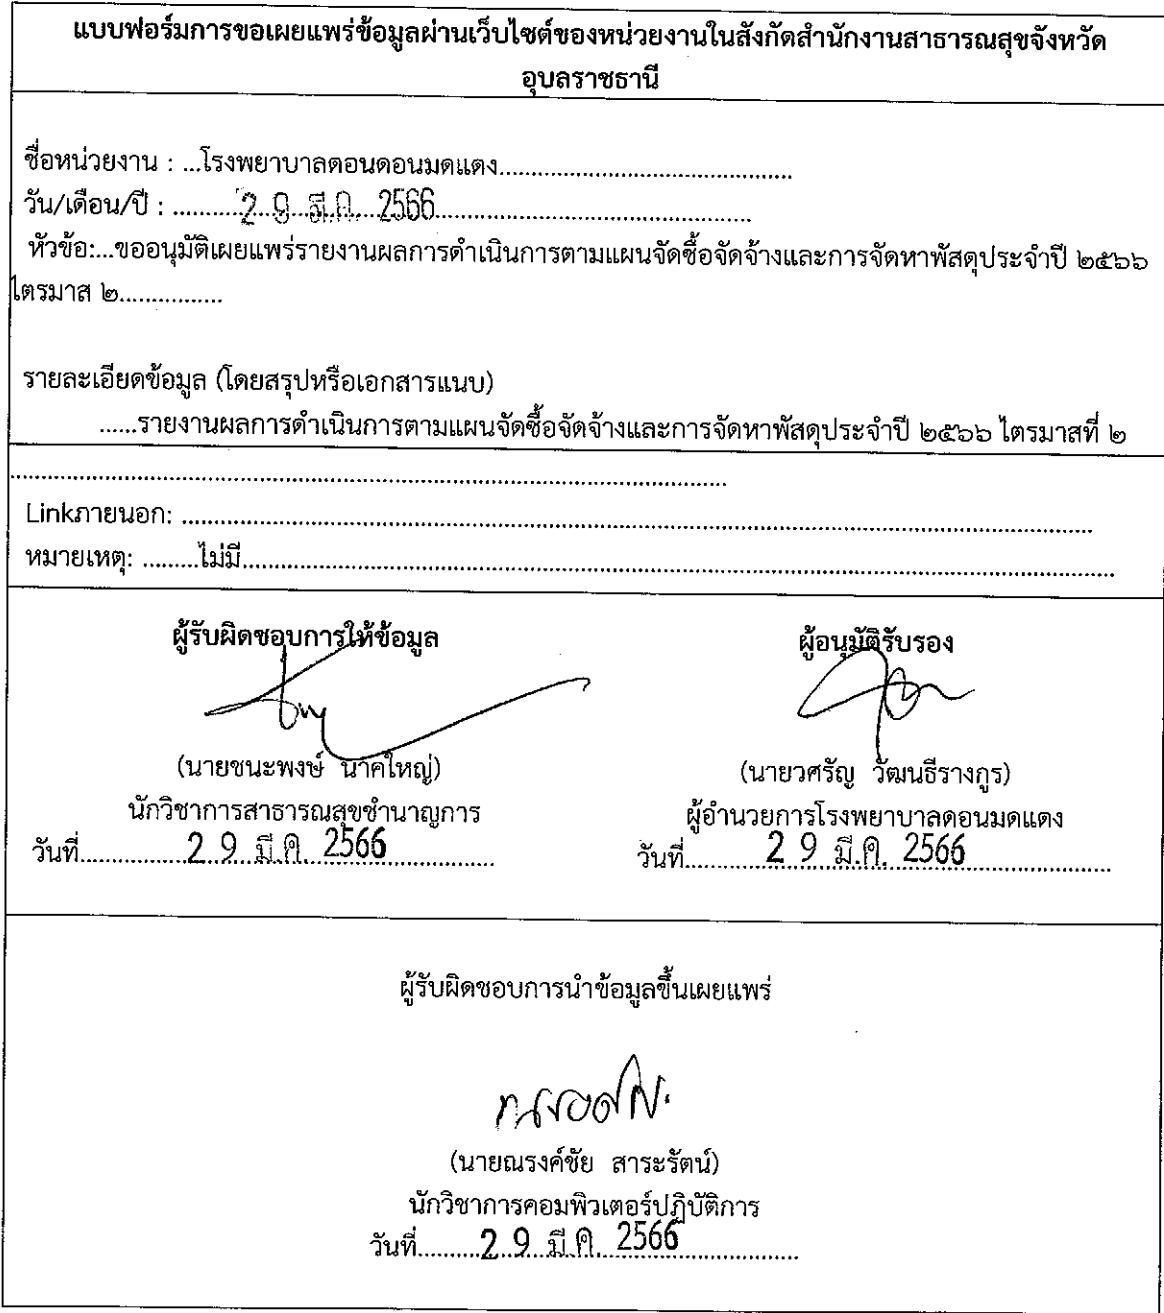 แบบฟอร์มการขอเผยแพร่ข้อมูลผ่านเว็บไซต์ของหน่วยงานในสังกัดสำนักงานสาธารณสุขจังหวัด
อุบลราชธานี
ชื่อหน่วยงาน : ...โรงพยาบาลดอนดอนมดแดง...............................................
วัน/เดือน/ปี : ...........2 9 มี.ค. 2566..................................................
หัวข้อ:...ขออนุมัติเผยแพร่รายงานผลการดำเนินการตามแผนจัดซื้อจัดจ้างและการจัดหาพัสดุประจำปี ๒๕๖๖
ไตรมาส ๒................
รายละเอียดข้อมูล (โดยสรุปหรือเอกสารแนบ)
......รายงานผลการดำเนินการตามแผนจัดซื้อจัดจ้างและการจัดหาพัสดุประจำปี ๒๕๖๖ ไตรมาสที่ ๒
....................................................................................................................
Linkภายนอก: ....................................................................................................................
หมายเหตุ: .........ไม่มี....................................................................................................................
ผู้รับผิดชอบการให้ข้อมูล ผู้อนุมัติรับรอง
(นายชนะพงษ์ นาคใหญ่) (นายวศรัญ วัฒนธีรางกูร)
นักวิชาการสาธารณสุขชำนาญการ ผู้อำนวยการโรงพยาบาลดอนมดแดง
วันที่.................2 9 มี.ค. 2566................. วันที่.............2 9 มี.ค. 2566.......................
ผู้รับผิดชอบการนำข้อมูลขึ้นเผยแพร่
(นายณรงค์ชัย สาระรัตน์)
นักวิชาการคอมพิวเตอร์ปฏิบัติการ
วันที่..........2 9 มี.ค. 2566...................